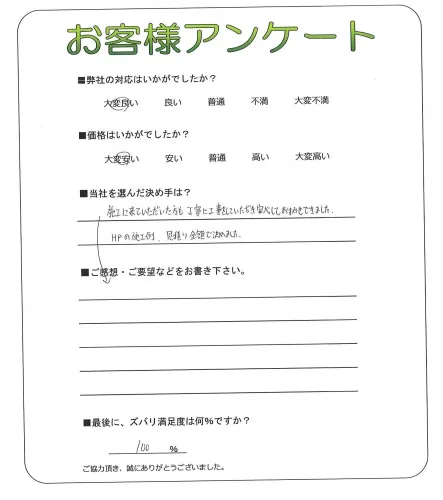 お客様アンケート
■弊社の対応はいかがでしたか？
大変良い 良い 普通 不満 大変不満
■価格はいかがでしたか？
大変安い 安い 普通 高い 大変高い
■当社を選んだ決め手は？
施工に来ていただいた方も丁寧に工事していただき安心しておまかせできました。
HPの施工例、見積り金額で決めました。
■ご感想・ご要望などをお書き下さい。
■最後に、ズバリ満足度は何％ですか？
100 %
ご協力頂き、誠にありがとうございました。